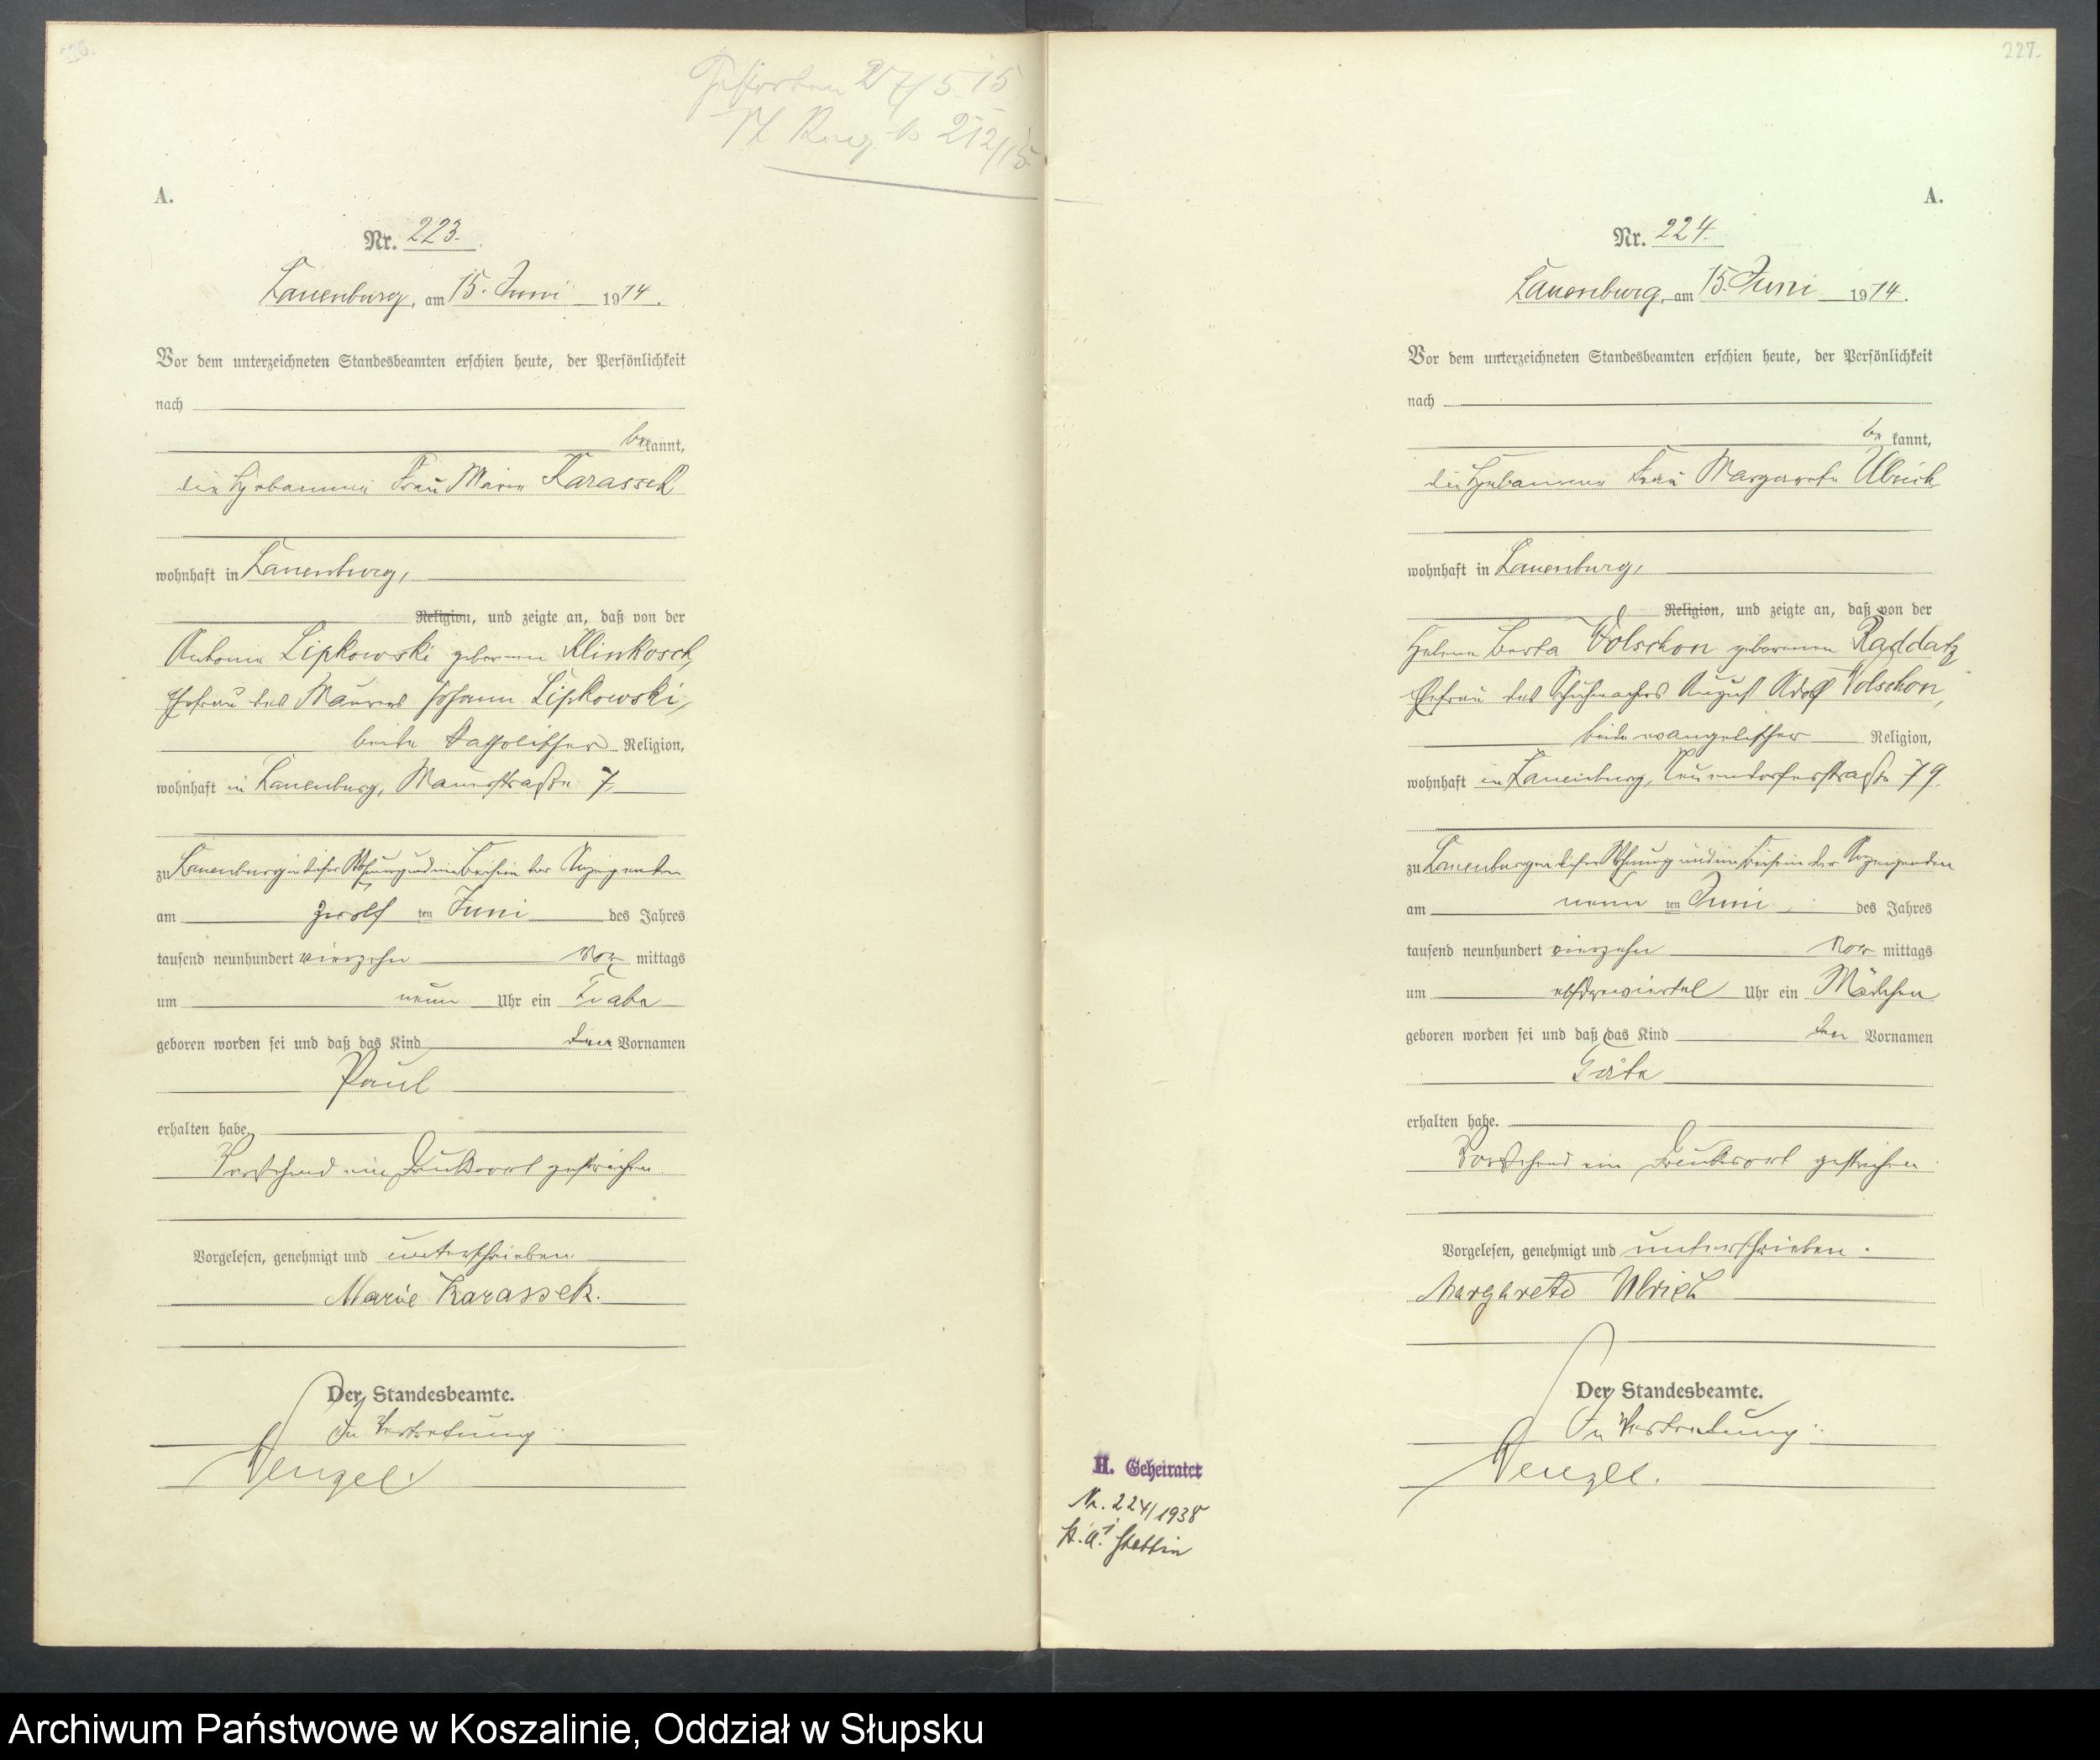 226.
Gestorben 27/5.15
St. Reg. No 212/15.
A.
Nr. 223.
Lauenburg, am 15. Juni 1914.
Vor dem unterzeichneten Standesbeamten erschien heute, der Persönlichkeit
nach
bekannt,
die Hebamme Frau Marie Karassek
wohnhaft in Lauenburg,
Religion, und zeigte an, daß von der
Antonie Lipkowski geborenen Klinkosch,
Ehefrau des Maurers Johann Lipkowski,
beide katholischer Religion,
wohnhaft in Lauenburg, Mauerstraße 7,
zu Lauenburg in dieser Wohnung und im Beisein der Anzeigenden
am zwölf ten Juni des Jahres
tausend neunhundert vierzehn Vor mittags
um neun Uhr ein Knabe
geboren worden sei und daß das Kind den Vornamen
Paul
erhalten habe.
Vorstehend ein Druckwort gestrichen
Vorgelesen, genehmigt und unterschrieben
Marie Karassek.
Der Standesbeamte.
In Vertretung:
Wenzel.
227.
A.
Nr. 224.
Lauenburg, am 15. Juni 1914.
Vor dem unterzeichneten Standesbeamten erschien heute, der Persönlichkeit
nach
be kannt,
die Hebamme Frau Margarete Ulrich
wohnhaft in Lauenburg,
Religion, und zeigte an, daß von der
Helene Berta Volschon geborenen Raddatz
Ehefrau des Schuhmachers August Adolf Volschon,
beide evangelischer Religion,
wohnhaft in Lauenburg, Neuendorferstraße 79.
zu Lauenburg in dieser Wohnung und im Beisein der Anzeigenden
am neun ten Juni des Jahres
tausend neunhundert vierzehn Vor mittags
um elfdreiviertel Uhr ein Mädchen
geboren worden sei und daß das Kind den Vornamen
Käte
erhalten habe.
Vorstehend ein Druckwort gestrichen.
Vorgelesen, genehmigt und unterschrieben.
Margarete Ulrich
Der Standesbeamte.
In Vertretung:
Wenzel.
H. Geheiratet
Nr. 224/1938
St.A. I Stettin
Archiwum Państwowe w Koszalinie, Oddział w Słupsku